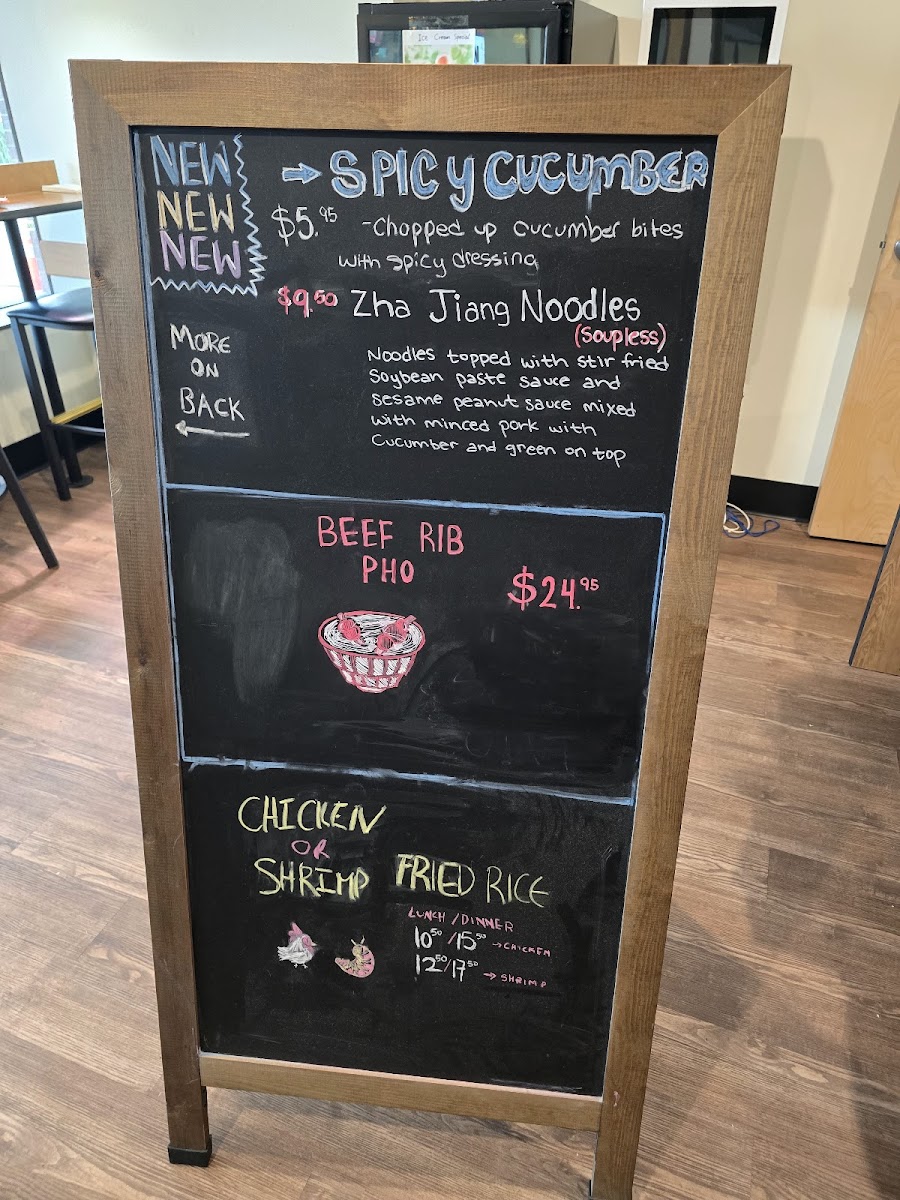 Ice Cream Special
NEW
NEW
NEW
→ SPICY CUCUMBER
$5.95 -Chopped up cucumber bites
with spicy dressing
$9.50 Zha Jiang Noodles
(Soupless)
Noodles topped with stir fried
Soybean paste sauce and
sesame peanut sauce mixed
with minced pork with
Cucumber and green on top
MORE
ON
BACK
←
BEEF RIB
PHO
$24.95
CHICKEN
OR
SHRIMP FRIED RICE
LUNCH/DINNER
10.50/15.50 → CHICKEN
12.50/17.50 → SHRIMP